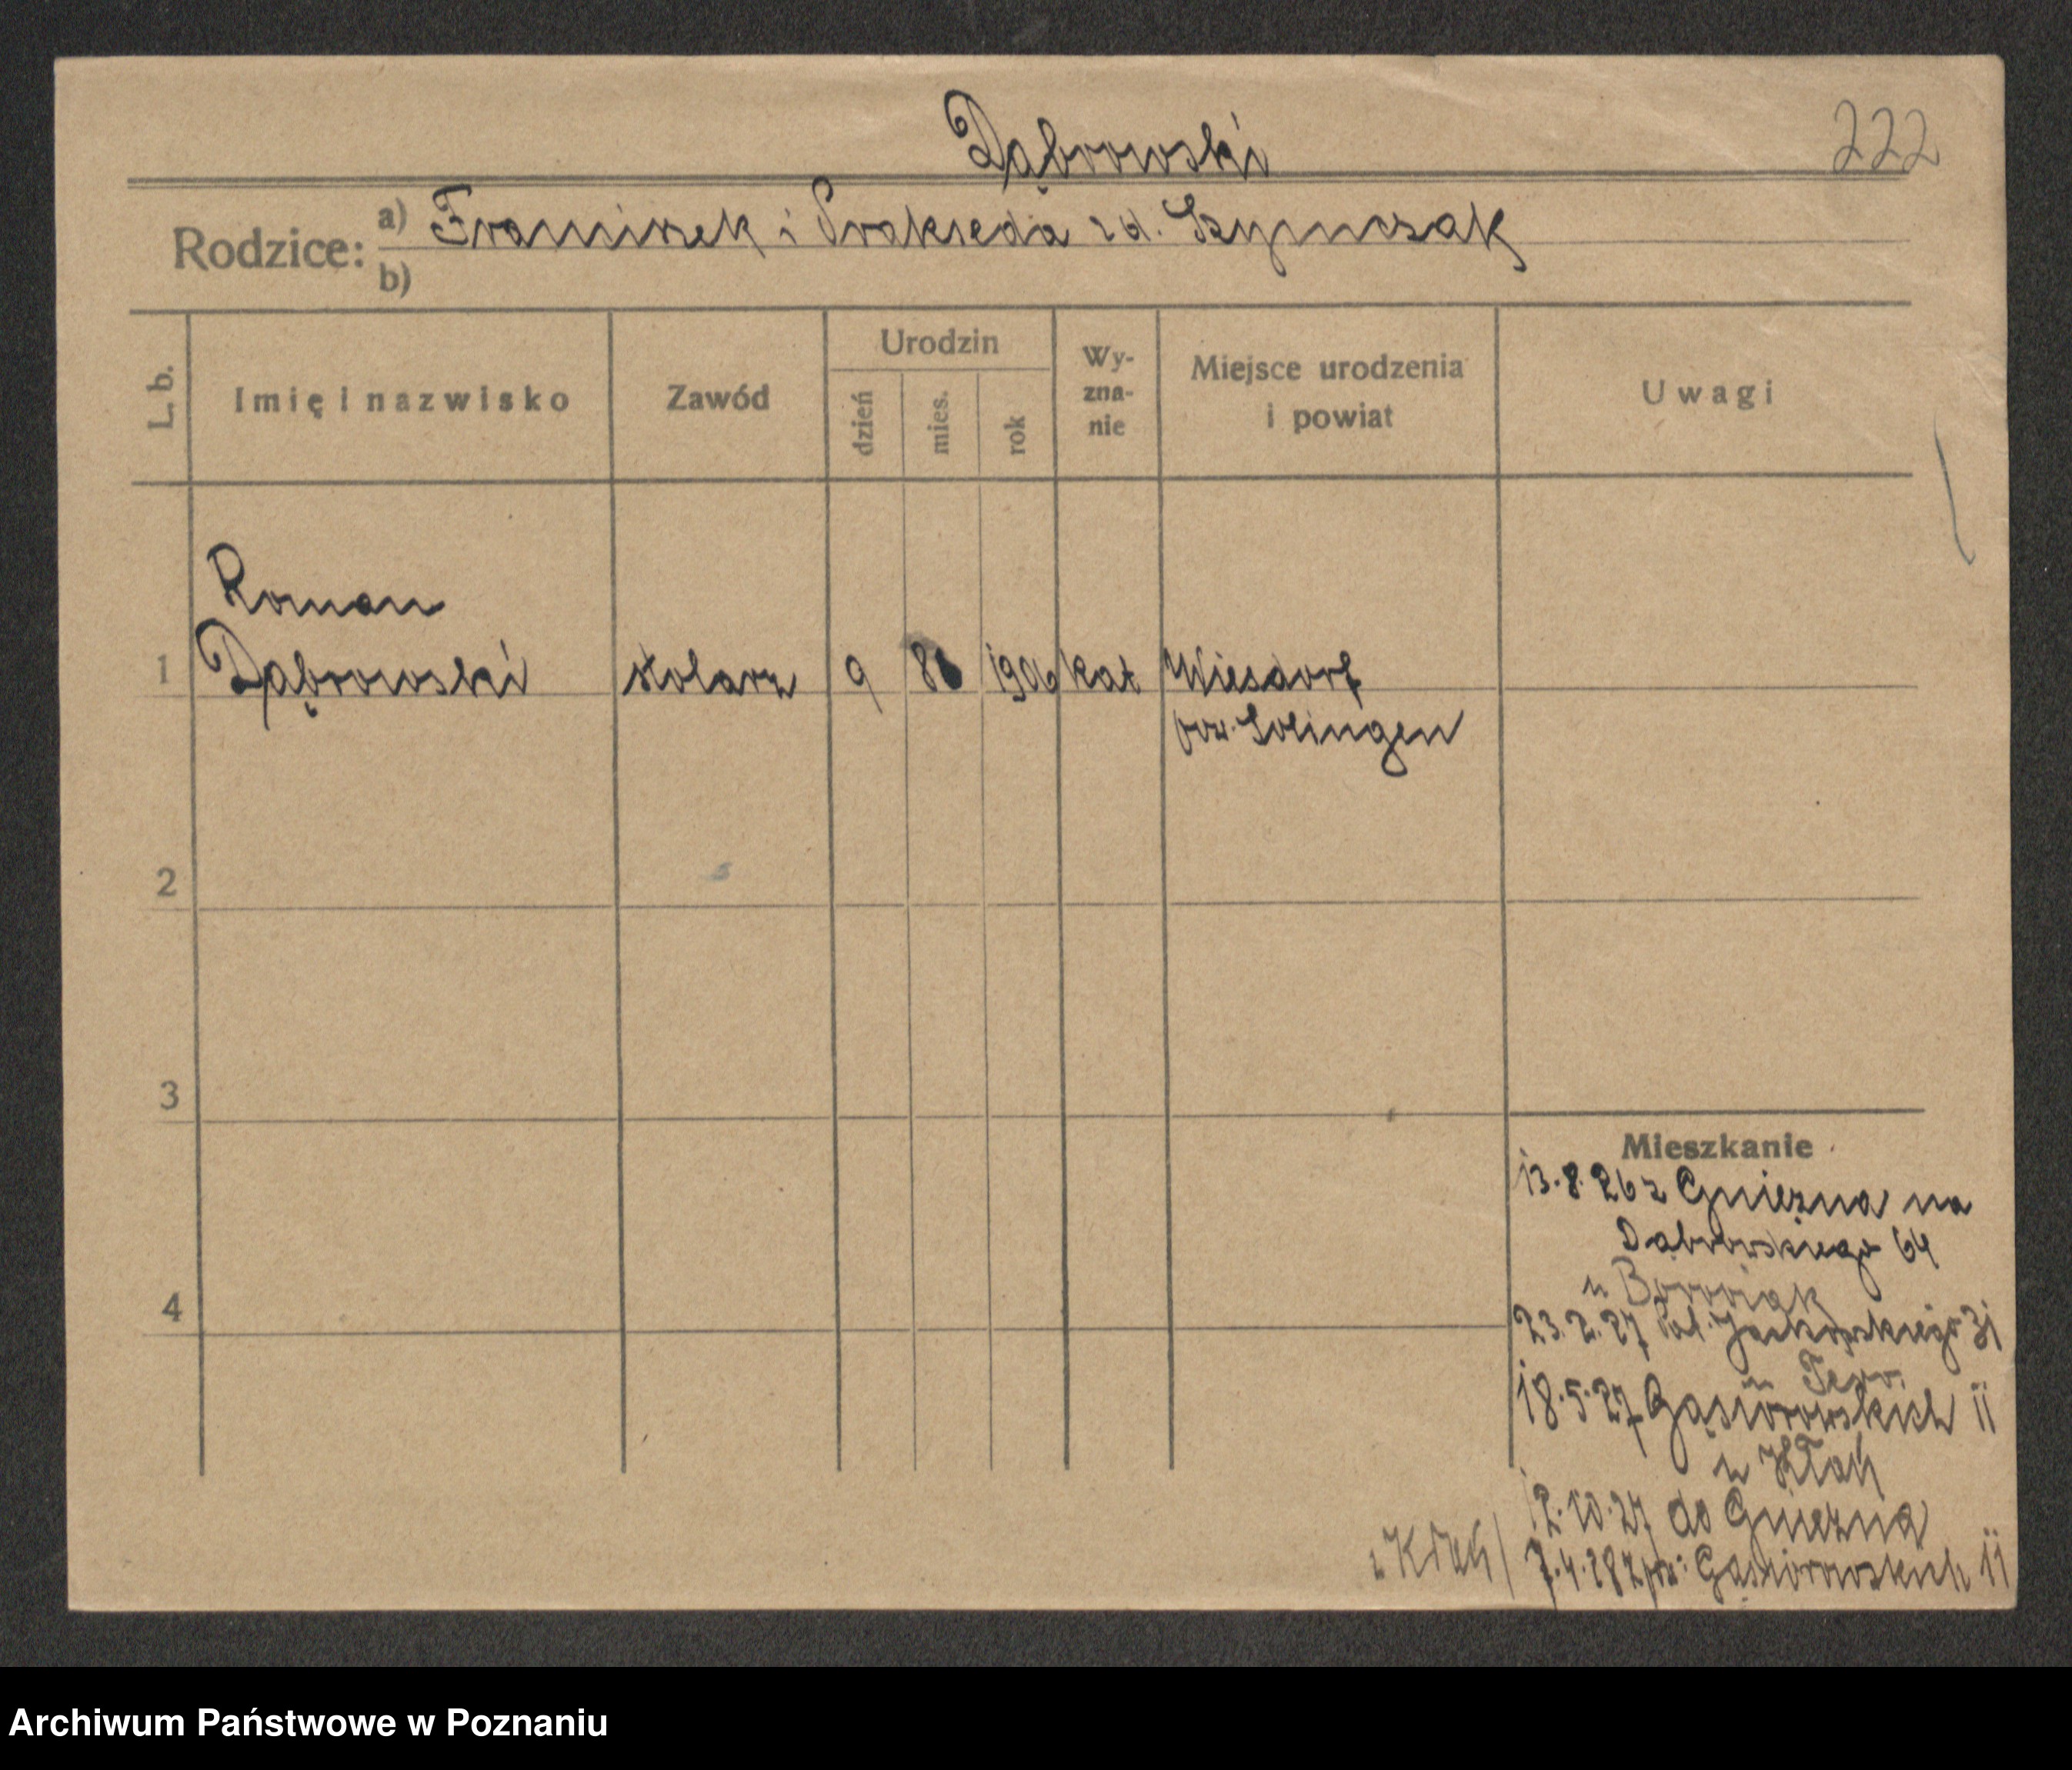 Dąbrowski
222
Rodzice: a) Franciszek i Prakseda zd. Szymczak
b)
L. b.
Imię i nazwisko
Zawód
Urodzin
dzień
mies.
rok
Wy-
zna-
nie
Miejsce urodzenia
i powiat
Uwagi
Roman
1 Dąbrowski stolarz 9 8 1906 kat Wiesdorf
pow. Solingen
2
3
Mieszkanie
13.8.26 z Gniezna na
Dąbrowskiego 64
u Borowiak
4
23.2.27 Jackowskiego 31
u
18.5.27 Gąsiorowskich 11
u
12.10.27 do Gniezna
7.4.28 Gąsiorowskich 11
Archiwum Państwowe w Poznaniu